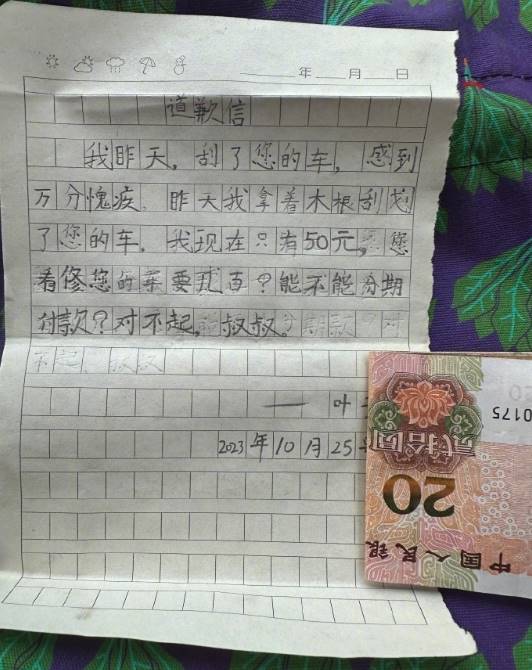 年 月 日
道歉信
我昨天，刮了您的车，感到
万分愧疚。昨天我拿着木棍刮划
了您的车。我现在只有50元，您
看修您的车要几百？能不能分期
付款？对不起，叔叔。
不起，叔叔
—— 叶
2023年10月25
0175
贰拾圆
20
中国人民银